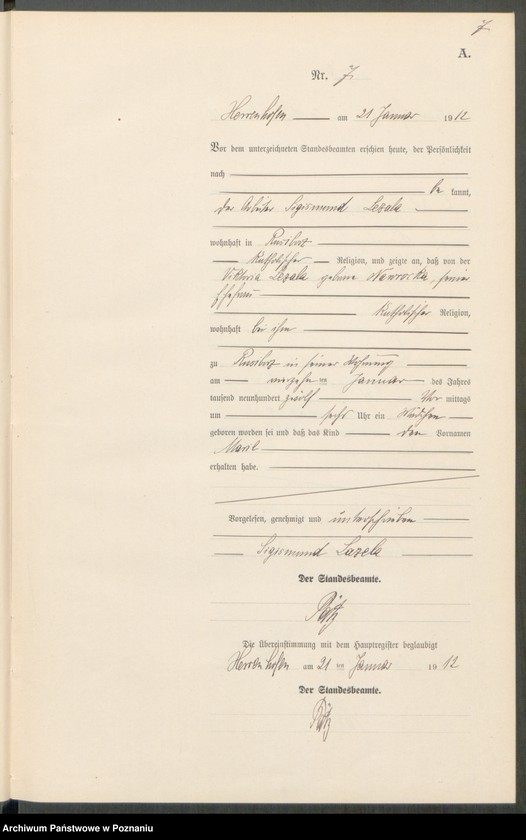 7
A.
Nr. 7
Herrenhofen am 21 Januar 1912
Vor dem unterzeichneten Standesbeamten erschien heute, der Persönlichkeit
nach
be kannt,
der Arbeiter Sigismund Lezala
wohnhaft in
katholischer Religion, und zeigte an, daß von der
Viktoria Lezala geborne Nawrocka, seiner
Ehefrau
katholischer Religion,
wohnhaft bei ihm
zu in seiner Wohnung
am vierzehn ten Januar des Jahres
tausend neunhundert zwölf Vor mittags
um sechs Uhr ein Mädchen
geboren worden sei und daß das Kind den Vornamen
erhalten habe.
Vorgelesen, genehmigt und unterschrieben
Sigismund Lezela
Der Standesbeamte.
Die Übereinstimmung mit dem Hauptregister beglaubigt
Herrenhofen am 21 ten Januar 1912
Der Standesbeamte.
Archiwum Państwowe w Poznaniu